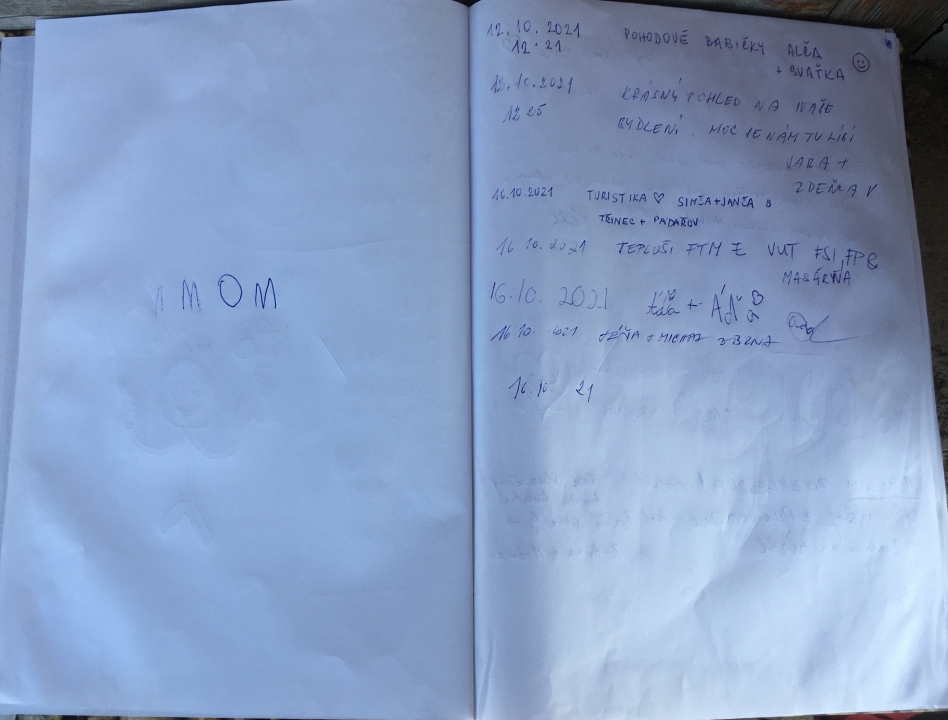 MOM
12.10.2021 POHODOVÉ BABIČKY ALČA
12.21 + SVAŤKA
12.10.2021 KRÁSNÝ POHLED NA NAŠE
12 25 BYDLENÍ. MOC SE NÁM TU LÍBÍ
JARA +
ZDEŇKA
16.10.2021 TURISTIKA ♡ SIMČA+JANČA
TŘINEC + PADAŘOV
16.10.2021 TEPLOUŠI FTM Z VUT FSI, FP &
MASÁRYŇA
16.10.2021 + ÁĎA
16.10. 2021 + MICHAL Z BRNA
16.10. 21